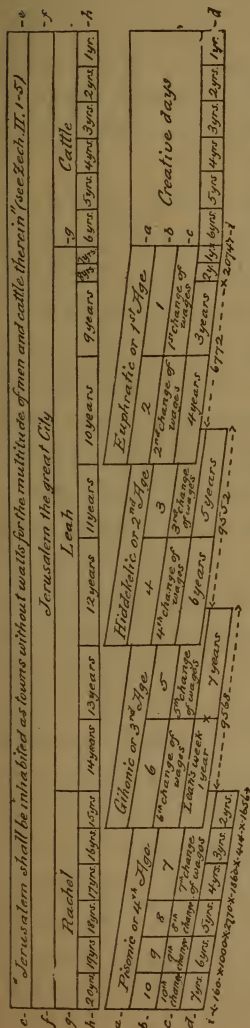 e- "Jerusalem shall be inhabited as towns without walls for the multitude of men and cattle therein" (see Zech. II. 1-5) -e
f- Jerusalem the great City -f
g- Rachel Leah -g Cattle
h- 20yrs 19yrs. 18yrs. 17yrs. 16yrs. 15yrs 14years 13years 12years 11years 10years 9years 6yrs 5yrs 4yrs 3yrs 2yrs 1yr. -h
a- Pisonic or 4th Age. Gihonic or 3rd Age Hiddekelic or 2nd Age Euphratic or 1st Age -a
b- 10 9 8 7 6 5 4 3 2 1 -b Creative days
c- 10th change 9th change 8th change 7th change of wages 6th change of wages 5th change of wages 4th change of wages 3rd change of wages 2nd change of wages 1st change of wages -c
Leah's week
d- 7yrs 6yrs. 5yrs. 4yrs. 3yrs. 2yrs. 1 year 7 years 6 years 5 years 4 years 3 years 2y 1yr 6yrs 5yrs 4yrs 3yrs 2yrs 1yr. -d
9568 9552 6772 20747-i